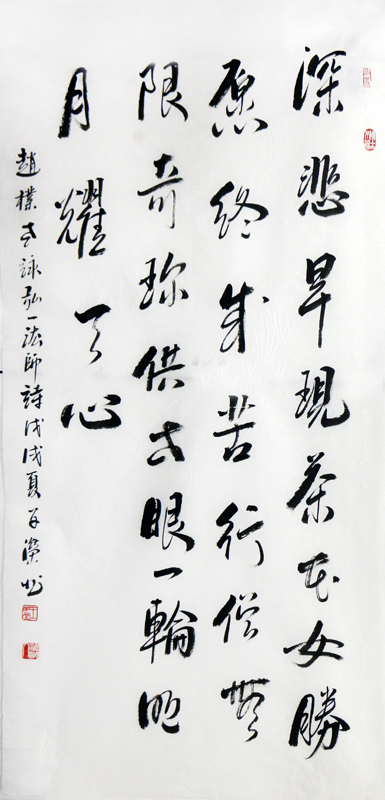 深悲早現茶花女勝
愿終成苦行僧無
限奇珍供世眼一輪明
月耀天心
趙樸老詠弘一法師詩戊戌夏